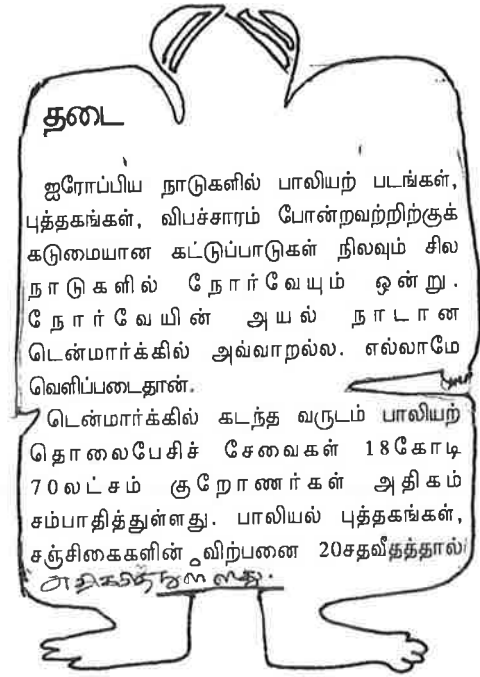 தடை
ஐரோப்பிய நாடுகளில் பாலியற் படங்கள்,
புத்தகங்கள், விபச்சாரம் போன்றவற்றிற்குக்
கடுமையான கட்டுப்பாடுகள் நிலவும் சில
நாடுகளில் நோர்வேயும் ஒன்று.
நோர்வேயின் அயல் நாடான
டென்மார்க்கில் அவ்வாறல்ல. எல்லாமே
வெளிப்படைதான்.
டென்மார்க்கில் கடந்த வருடம் பாலியற்
தொலைபேசிச் சேவைகள் 18கோடி
70லட்சம் குறோணர்கள் அதிகம்
சம்பாதித்துள்ளது. பாலியல் புத்தகங்கள்,
சஞ்சிகைகளின் விற்பனை 20சதவீதத்தால்
அதிகரித்துள்ளது.